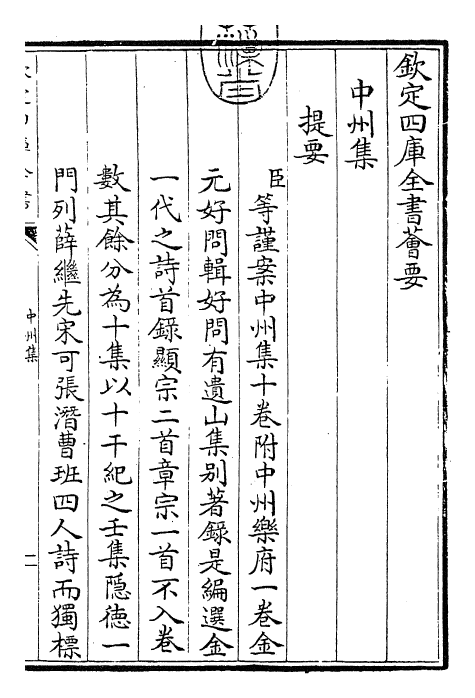 欽定四庫全書薈要
中州集
提要
臣等謹案中州集十卷附中州樂府一卷金
元好問輯好問有遺山集別著錄是編選金
一代之詩首錄顯宗二首章宗一首不入卷
數其餘分為十集以十干紀之壬集隱德一
門列薛繼先宋可張潛曹珏四人詩而獨標
中州集